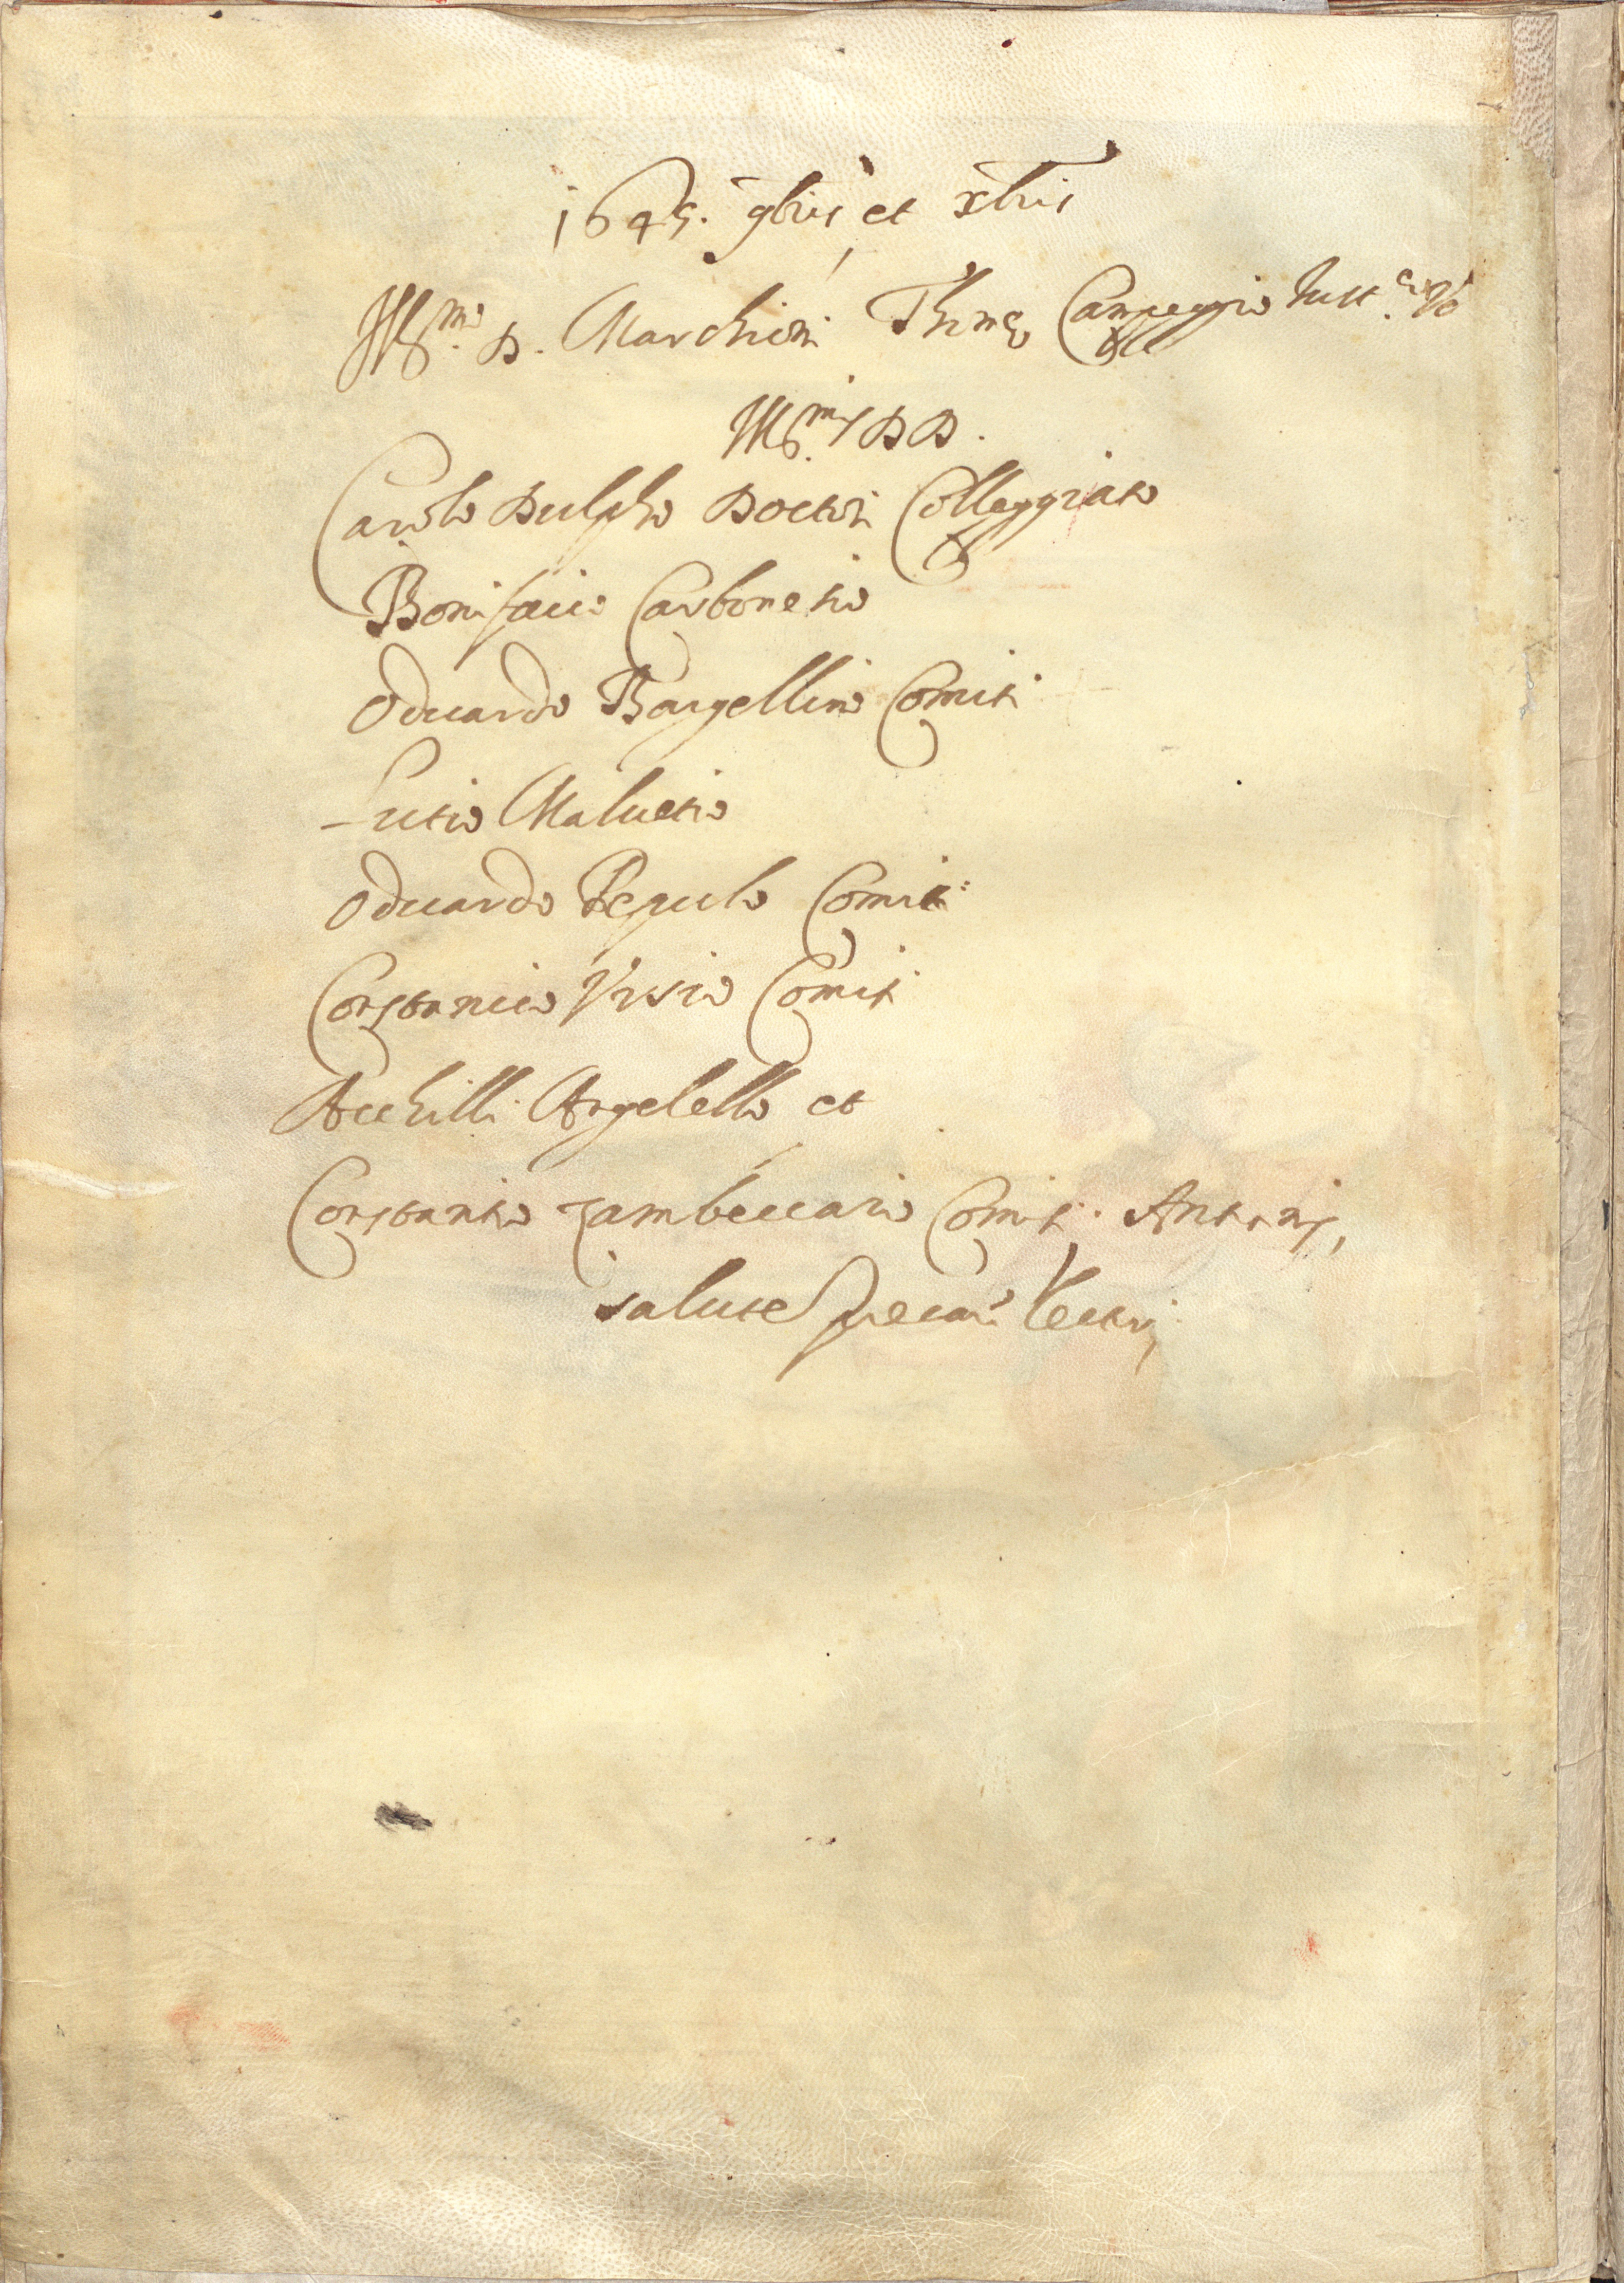 1645. 9bris, et Xbris
Ill.mo D. Marchioni Thomæ Campeggio Iust.æ Vo
Ill.mis DD.
Carolo Dulpho Doctori Colleggiato
Bonifacio Carbonesio
Oduardo Bargellino Comiti
Lutio Maluetio
Oduardo Pepulo Comiti
Constancio Vrsio Comiti
Acchilli Angelello et
Constantio Zambeccario Comiti Antonij,
salute precari Lector,